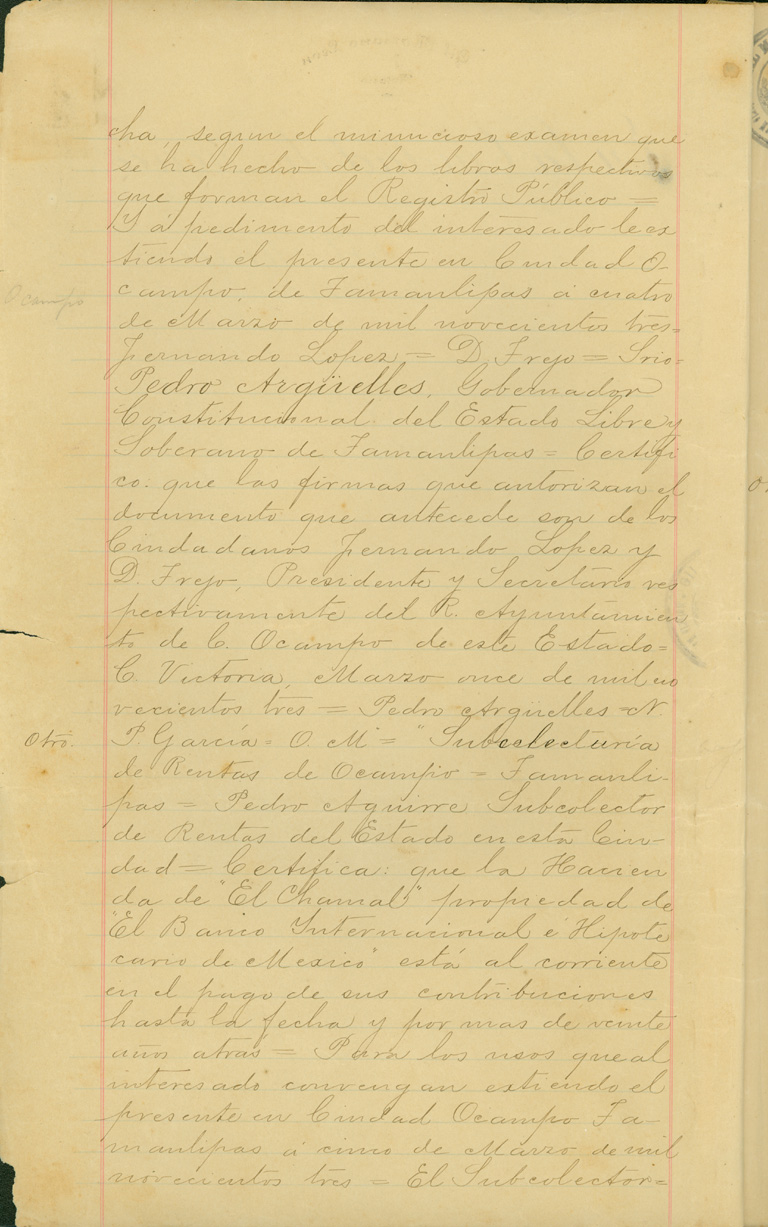 cha, segun el minucioso examen que
se ha hecho de los libros respectivos
que forman el Registro Público =
Y a pedimento del interesado le ex
tiendo el presente en Ciudad O-
Ocampo
campo, de Tamaulipas á cuatro
de Marzo de mil novecientos tres=
Fernando Lopez = D. Trejo = Srio=
Pedro Argüelles, Gobernador
Constitucional del Estado Libre y
Soberano de Tamaulipas = Certifi
co: que las firmas que autorizan el
documento que antecede son de los
Ciudadanos Fernando Lopez y
D. Trejo, Presidente y Secretario res
pectivamente del R. Ayuntamien
to de C. Ocampo de este Estado=
C. Victoria, Marzo once de mil no
vecientos tres = Pedro Argüelles = N.
Otro.
P. García = O. M = "Subcolecturía
de Rentas de Ocampo = Tamauli-
pas = Pedro Aguirre Subcolector
de Rentas del Estado en esta Ciu-
dad = Certifica: que la Hacien
da de "El Chamal" propiedad de
"El Banco Internacional é Hipote
cario de Mexico" está al corriente
en el pago de sus contribuciones
hasta la fecha y por mas de veinte
años atras = Para los usos que al
interesado convengan extiendo el
presente en Ciudad Ocampo Ta-
maulipas á cinco de Marzo de mil
novecientos tres = El Subcolector=